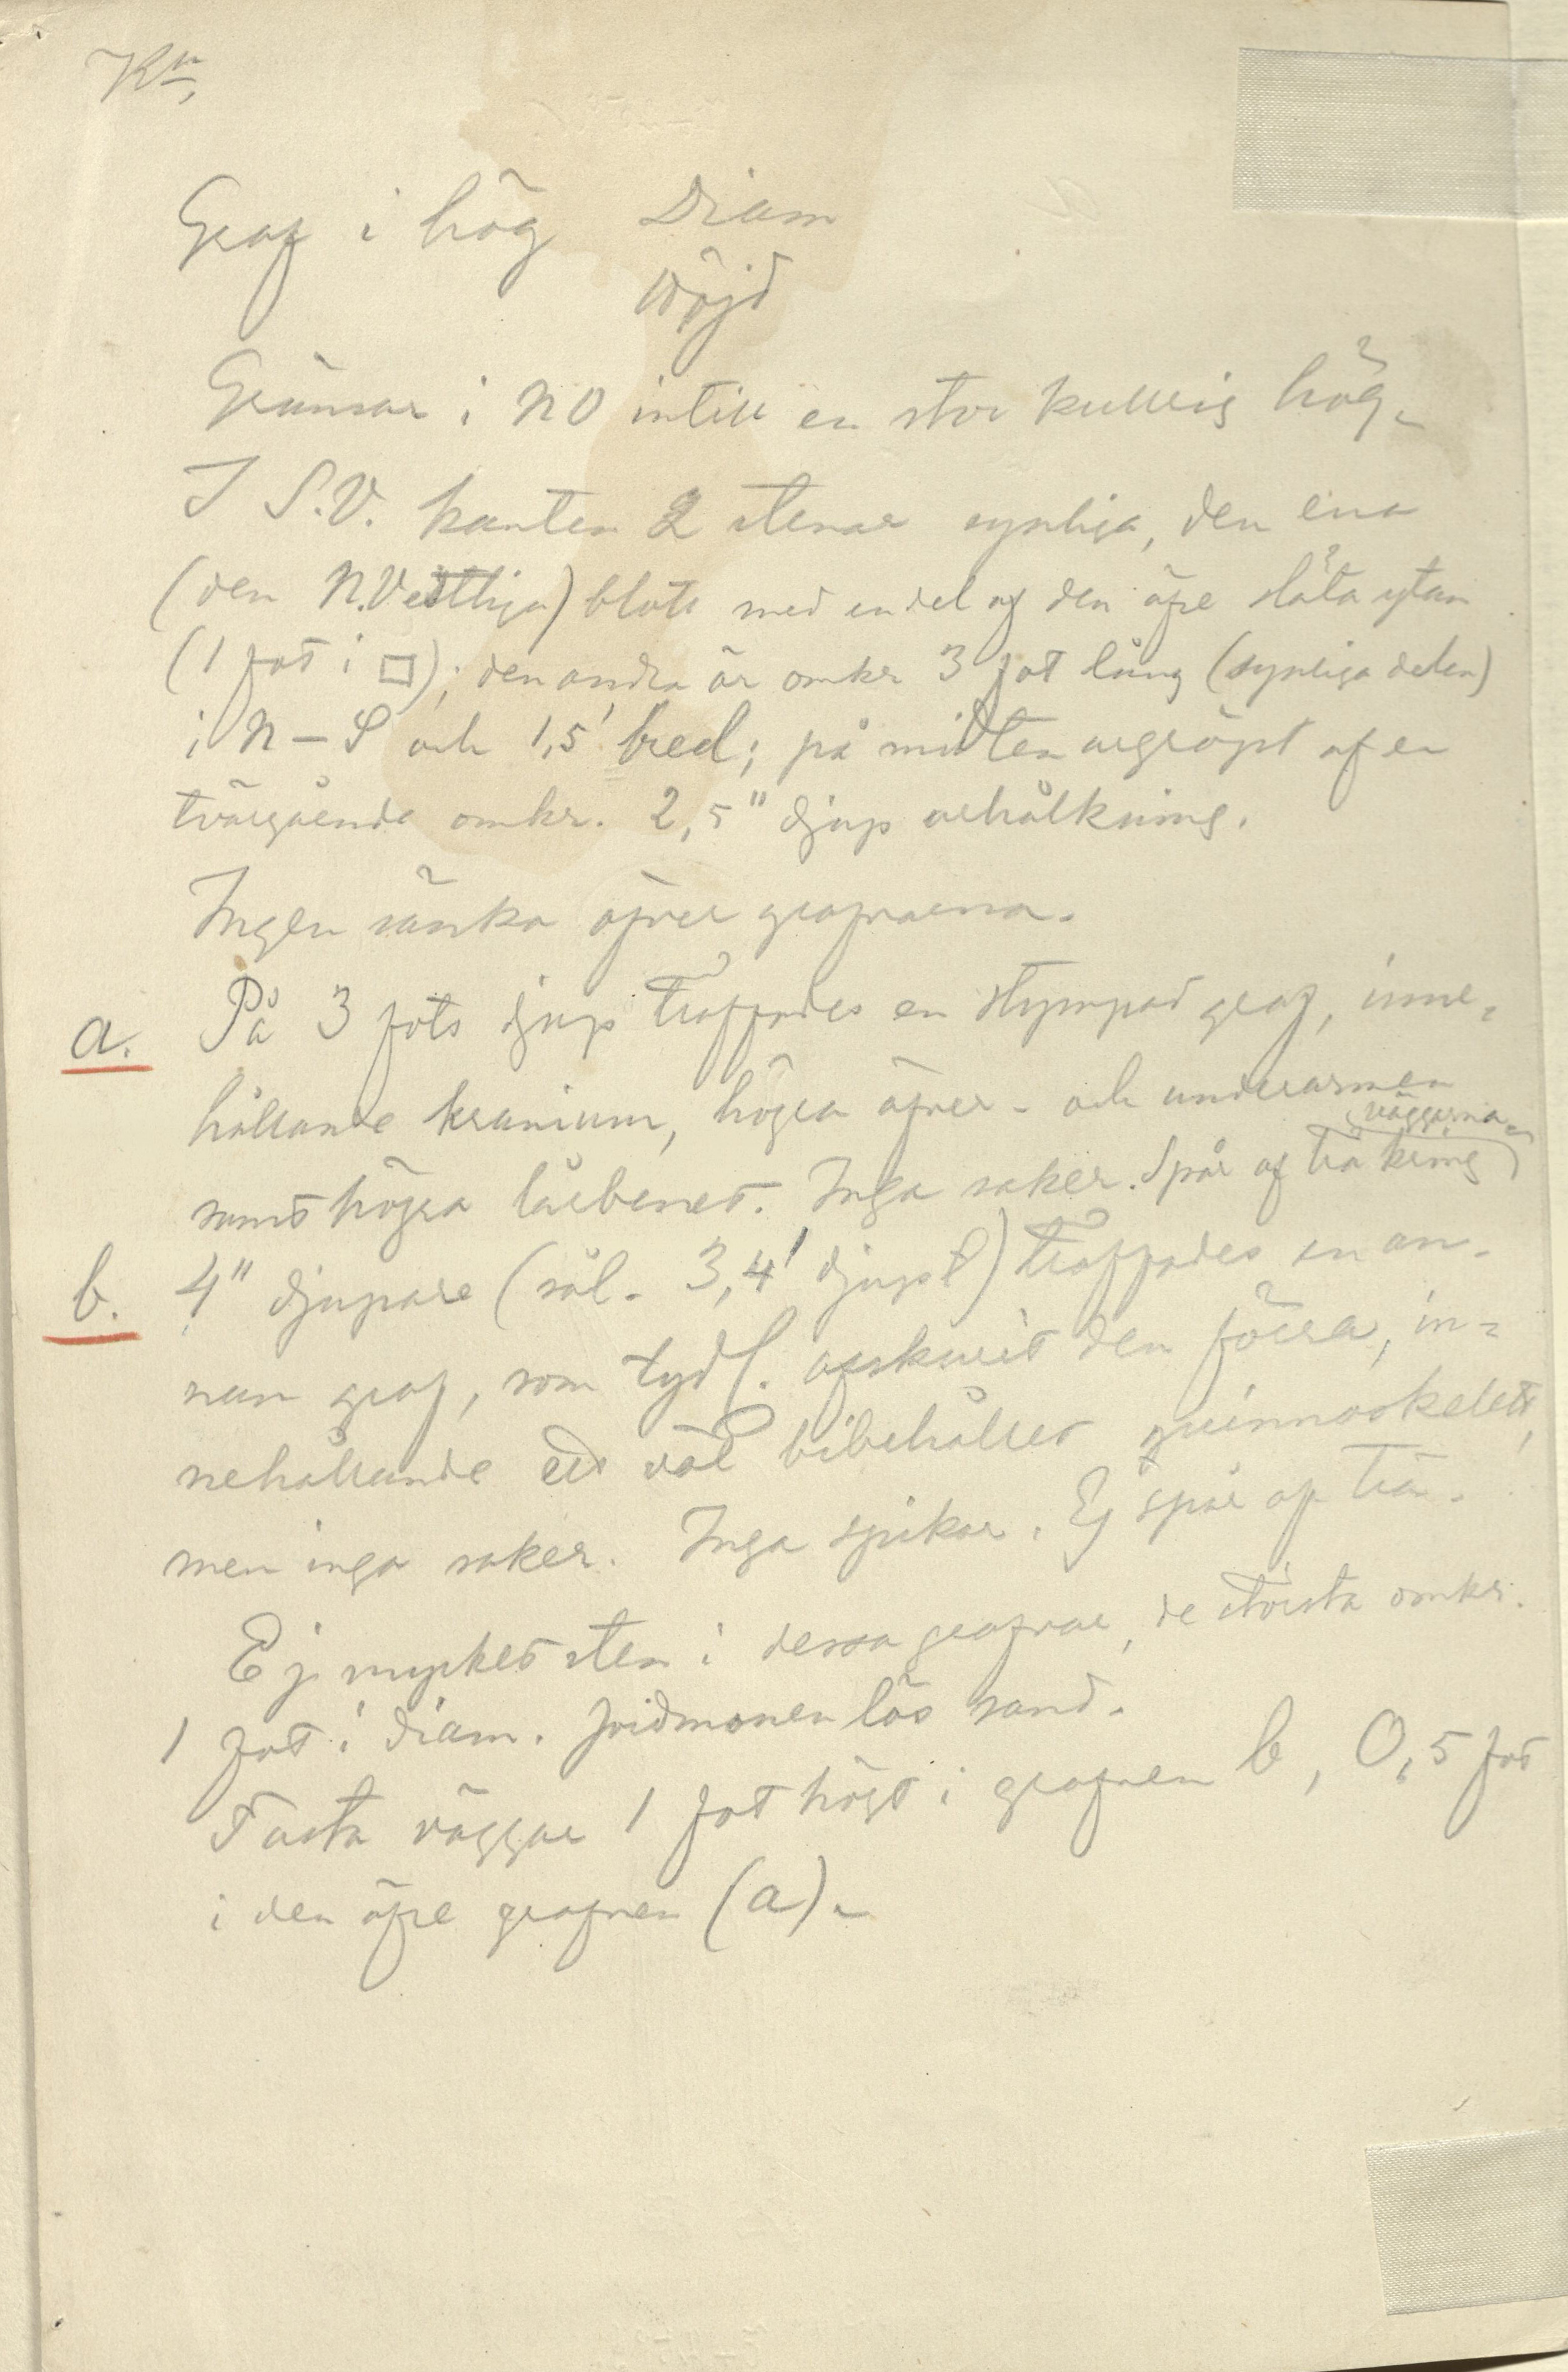 Kn,
Graf i hög Diam
Höjd
Gränsar i NO intill en stor kullrig hög.
I S.V. kanten 2 stenar synliga, den ena
(den N.Vestliga) blott med en del af den öfre släta ytan
(1 fot i □); den andra är omkr 3 fot lång (synliga delen)
i N – S och 1,5' bred; på midten urgröpt af en
tvärgående omkr. 2,5" djup urhålkning.
Ingen sänka öfver grafvarna.
a. På 3 fots djup träffades en stympad graf, inne-
hållande kranium, högra öfver- och underarmen
väggarna
samt högra lårbenet. Inga saker. Spår af trä kring
b. 4" djupare (sål. 3,4' djupt) träffades en an-
nan graf, som tydl. afskurit den förra, in-
nehållande ett väl bibehållet qvinnoskelett,
men inga saker. Inga spikar. Ej spår af trä.
Ej mycket sten i dessa grafvar, de största omkr.
1 fot i diam. lös sand.
Fasta väggar 1 fot högt i grafven b, 0,5 fot
i den öfre grafven (a).